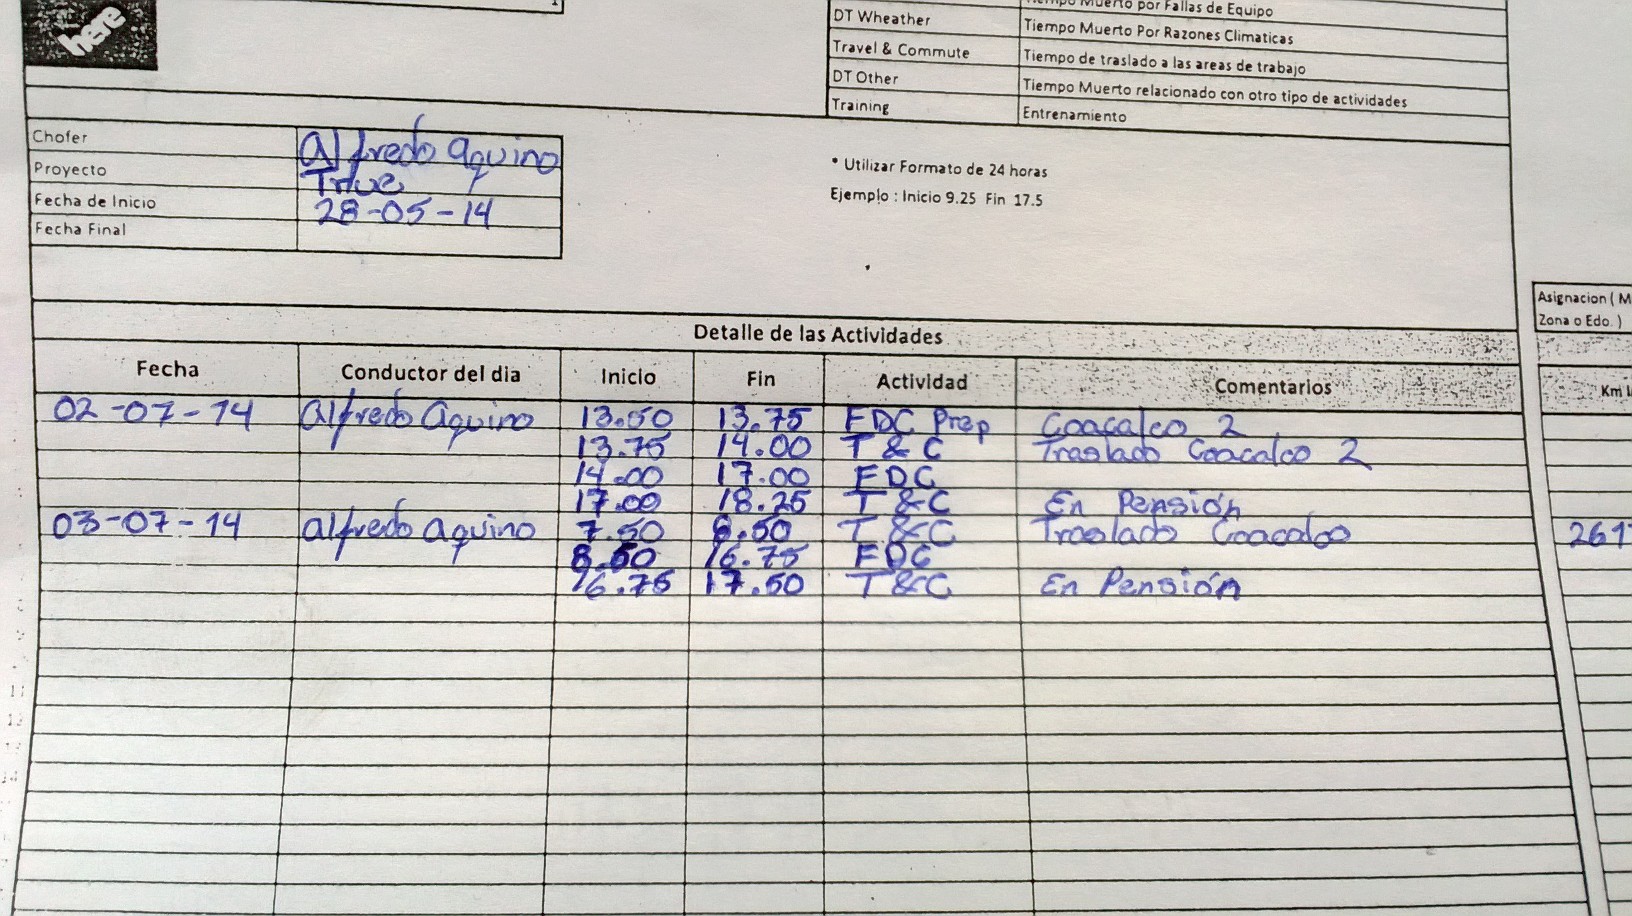 here
1
Tiempo Muerto por Fallas de Equipo
DT Wheather Tiempo Muerto Por Razones Climaticas
Travel & Commute Tiempo de traslado a las areas de trabajo
DT Other Tiempo Muerto relacionado con otro tipo de actividades
Training Entrenamiento
Chofer Alfredo Aquino
Proyecto True
Fecha de Inicio 28-05-14
Fecha Final
* Utilizar Formato de 24 horas
Ejemplo : Inicio 9.25 Fin 17.5
Asignacion ( M
Zona o Edo. )
Detalle de las Actividades
Fecha Conductor del dia Inicio Fin Actividad Comentarios Km
02-07-14 Alfredo Aquino 13.50 13.75 FDC Prep Coacalco 2
13.75 14.00 T & C Traslado Coacalco 2
14.00 17.00 FDC
17.00 18.25 T & C En Pensión
03-07-14 Alfredo Aquino 7.50 8.50 T & C Traslado Coacalco 261
8.50 16.75 FDC
16.75 17.50 T & C En Pensión
11
13
14